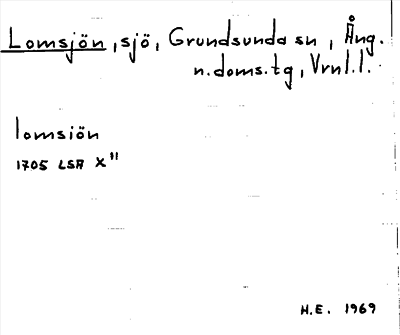 Lomsjön, sjö, Grundsunda sn, Ång.
n. doms. tg, Vrnl. l.
lomsiön
1705 LSA X¹¹
H.E. 1969